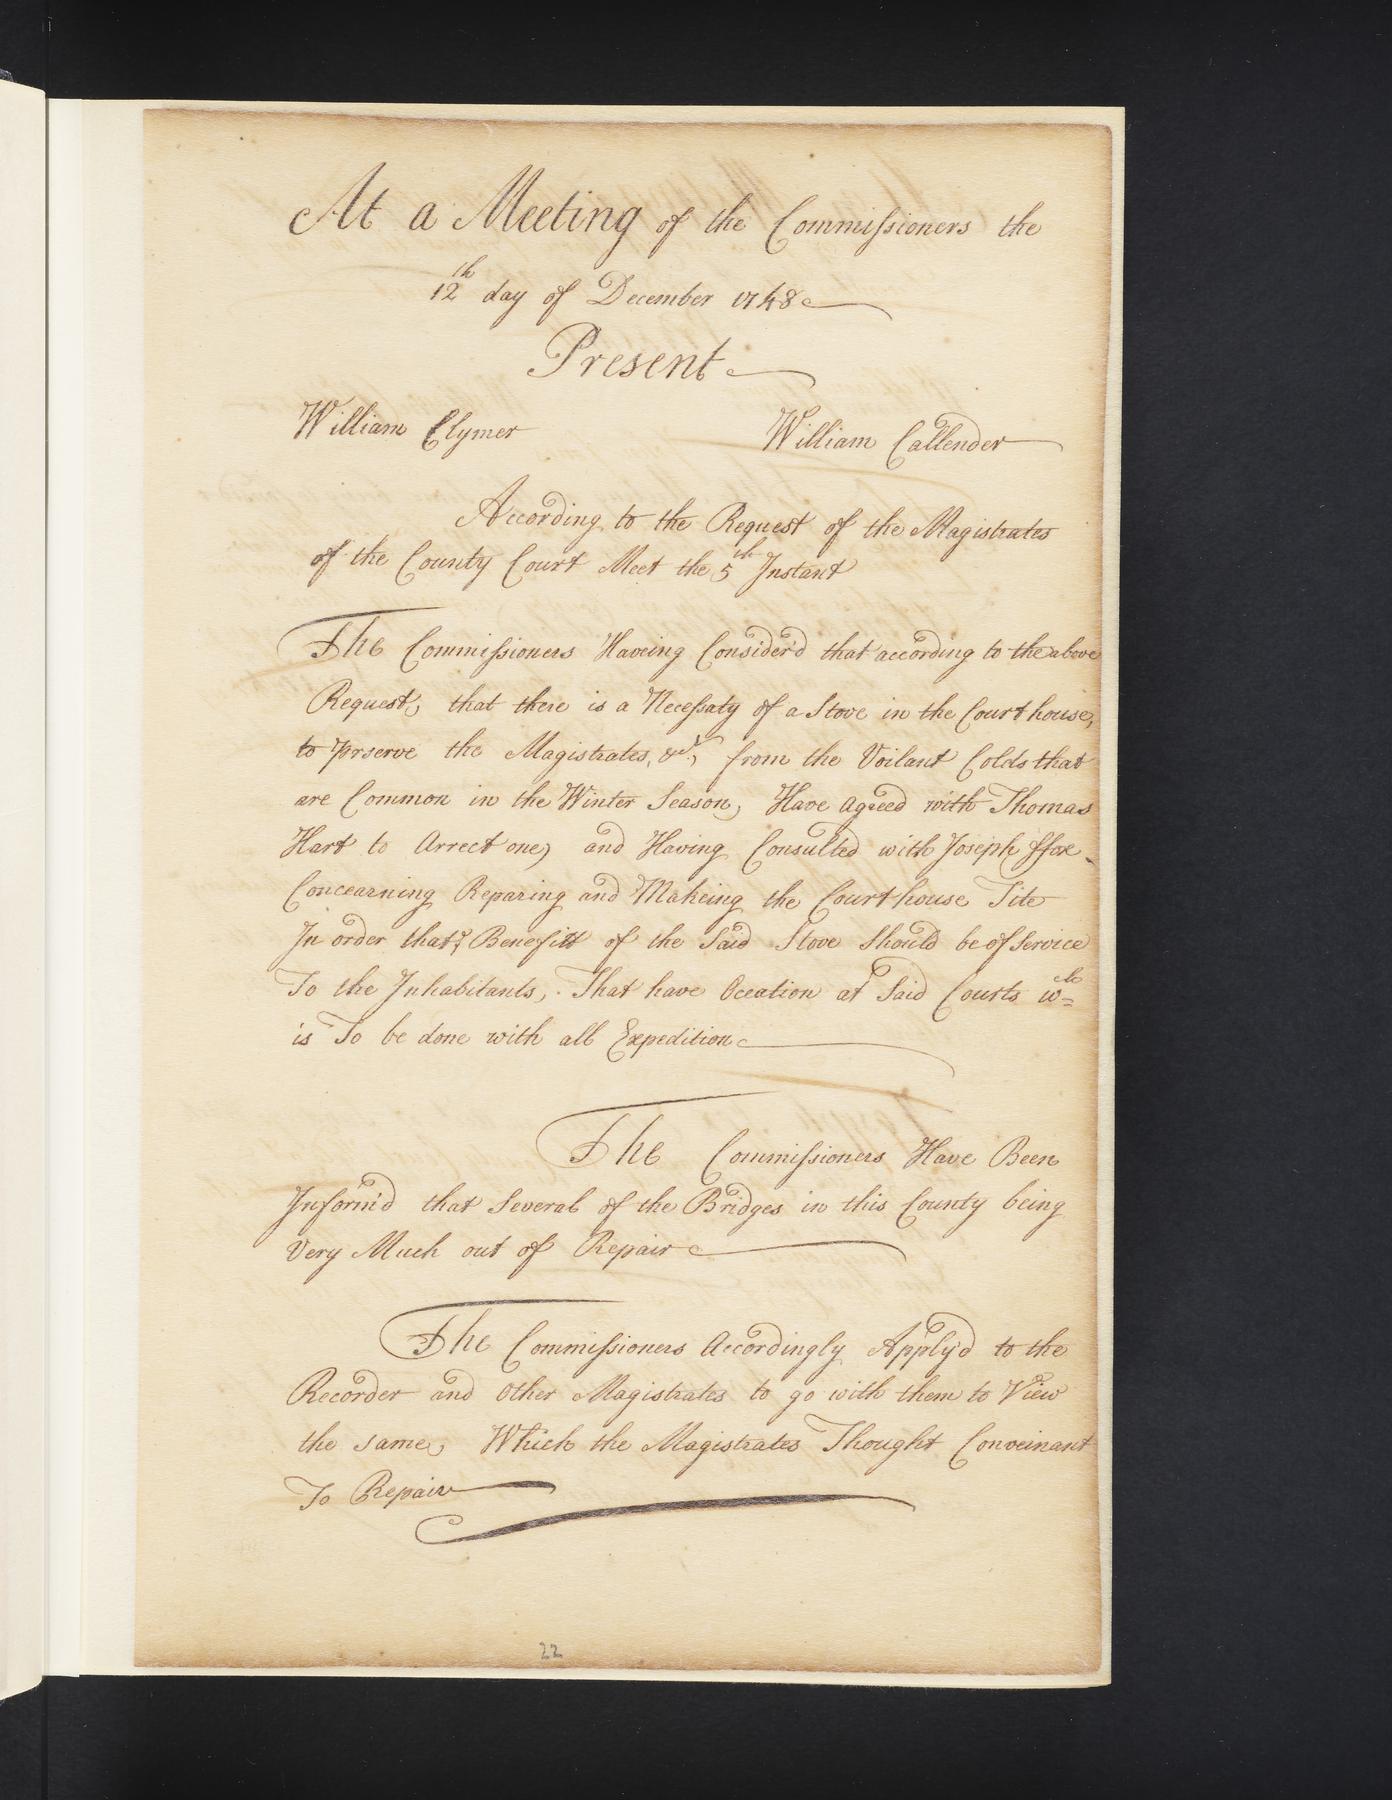 At a Meeting of the Commissioners the
12th day of December 1748
Present
William Clymer William Callender
According to the Request of the Magistrates
of the County Court Meet the 5th Instant
The Commissioners Haveing Consider'd that according to the above
Request, that there is a Necessaty of a Stove in the Court house,
to prserve the Magistrates, &c., from the Voilant Colds that
are Common in the Winter Season, Have agreed with Thomas
Hart to Arrect one, and Having Consulted with Joseph ffox
Concearning Reparing and Makeing the Court house Tite
In order that ye Benefitt of the Said Stove Should be of Service
To the Inhabitants, That have Oceation at Said Courts wch
is To be done with all Expedition
The Commissioners Have Been
Inform'd that Several of the Bridges in this County being
Very Much out of Repair
The Commissioners Accordingly Apply'd to the
Recorder and Other Magistrates to go with them to View
the same, Which the Magistrates Thought Conveinant
To Repair
22